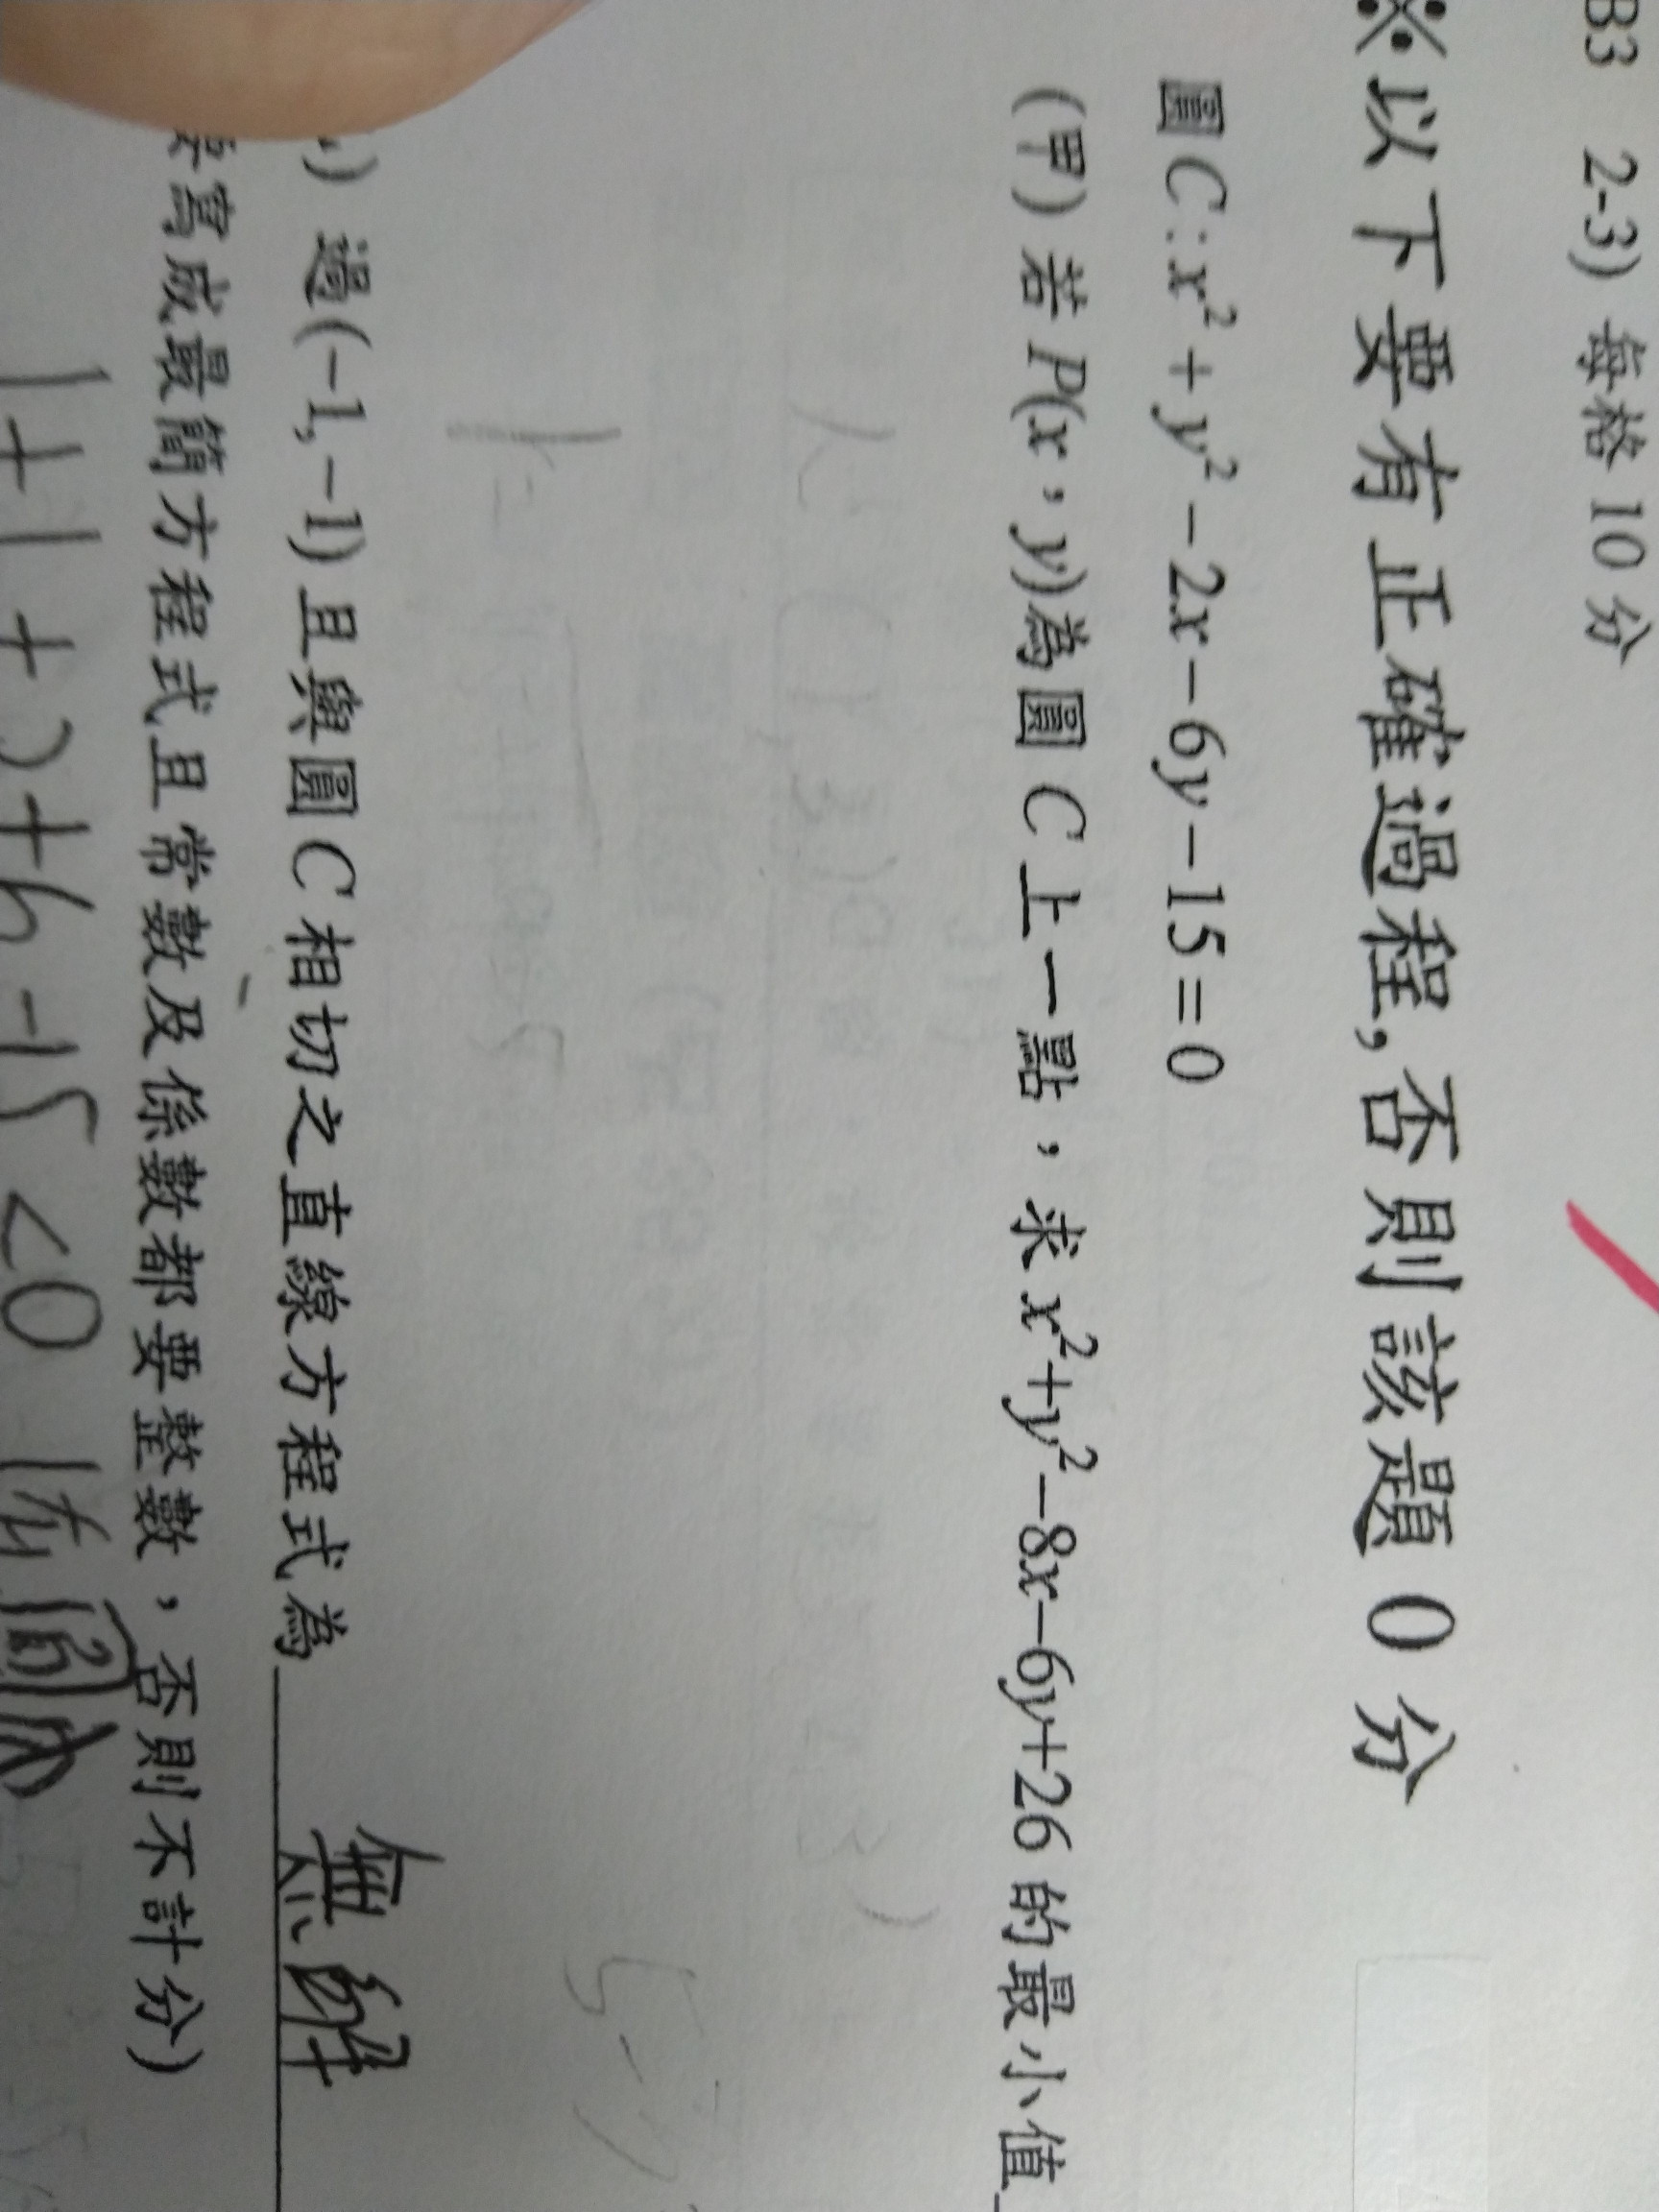 B3 2-3) 每格 10 分
※以下要有正確過程,否則該題 0 分
圓 C: x² + y² − 2x − 6y − 15 = 0
(甲) 若 P(x，y)為圓 C 上一點，求 x²+y²−8x−6y+26 的最小值
) 過(−1,−1) 且與圓 C 相切之直線方程式為 無解
寫成最簡方程式且常數及係數都要整數，否則不計分)
1+1+2+6-15<0 在圓內